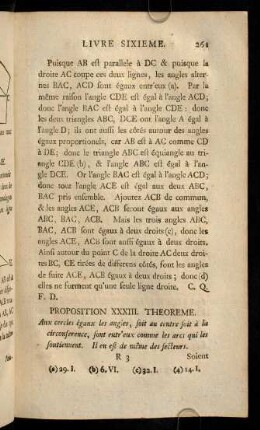 LIVRE SIXIEME. 261
Puisque AB est parallele à DC & puisque la
droite AC coupe ces deux lignes, les angles alter-
nes BAC, ACD sont égaux entr'eux (a). Par la
même raison l'angle CDE est égal à l'angle ACD;
donc l'angle BAC est égal à l'angle CDE: donc
les deux triangles ABC, DCE ont l'angle A égal à
l'angle D; ils ont aussi les côtés autour des angles
égaux proportionels, car AB est à AC comme CD
à DE; donc le triangle ABC est équiangle au tri-
angle CDE (b), & l'angle ABC est égal à l'an-
gle DCE. Or l'angle BAC est égal à l'angle ACD;
donc tout l'angle ACE est égal aux deux ABC,
BAC pris ensemble. Ajoutez ACB de commun,
& les angles ACE, ACB seront égaux aux angles
ABC, BAC, ACB. Mais les trois angles ABC,
BAC, ACB sont égaux à deux droits (c), donc les
angles ACE, ACB sont aussi égaux à deux droits.
Ainsi autour du point C de la droite AC deux droi-
tes BC, CE tirées de differens côtés, font les angles
de suite ACE, ACB égaux à deux droits; donc (d)
elles ne forment qu'une seule ligne droite. C. Q.
F. D.
PROPOSITION XXXIII. THEOREME.
Aux cercles égaux les angles, soit au centre soit à la
circonference, sont entr'eux comme les arcs qui les
soutiennent. Il en est de même des secteurs.
R 3 Soient
(a) 29. I. (b) 6. VI. (c) 32. I. (d) 14. I.